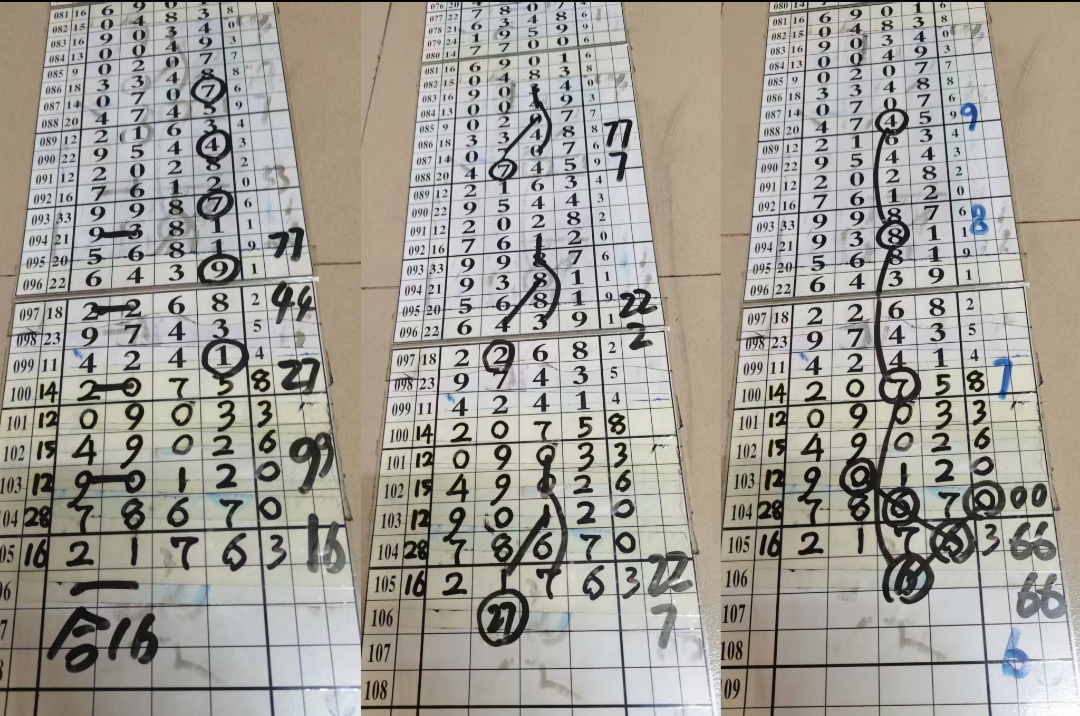 081 16 6 9 0 1 8
082 15 0 4 8 3 6
083 16 9 0 3 4 0
084 13 0 0 4 9 3
085 9 0 2 0 7 7
086 18 3 3 4 8 8
087 14 0 7 0 7 6
088 20 4 7 4 5 9
089 12 2 1 6 3 4
090 22 9 5 4 4 3
091 12 2 0 2 8 2
092 16 7 6 1 2 0
093 33 9 9 8 7 6
094 21 9 3 8 1 1
095 20 5 6 8 1 9 77
096 22 6 4 3 9 1
097 18 2 2 6 8 2 44
098 23 9 7 4 3 5
099 11 4 2 4 1 4 27
100 14 2 0 7 5 8
101 12 0 9 0 3 3
102 15 4 9 0 2 6 99
103 12 9 0 1 2 0
104 28 7 8 6 7 0
105 16 2 1 7 6 3 16
16
076 20
077 22 7 8 4 8
078 21 6 3 4 9 6
079 24 1 9 5 9 9
080 14 7 7 0 0 6
081 16 6 9 0 1 8
082 15 0 4 8 3 6
083 16 9 0
084 13 0 0 9 3
085 9 0 2 7 7
086 18 3 3 4 8 8 77
087 14 0 7 0 7 6 7
088 20 4 7 4 5 9
089 12 2 1 6 3 4
090 22 9 5 4 4 3
091 12 2 0 2 8 2
092 16 7 6 1 2 0
093 33 9 9 8 7 6
094 21 9 3 8 1 1
095 20 5 6 8 1 9 22
096 22 6 4 3 9 1 2
097 18 2 2 6 8 2
098 23 9 7 4 3 5
099 11 4 2 4 1 4
100 14 2 0 7 5 8
101 12 0 9 0 3 3
102 15 4 9 0 2 6
103 12 9 0 1 2 0
104 28 7 8 6 7 0
105 16 2 1 7 6 3 22
106 27 7
107
108
080 14
081 16 6 9 0 1 8
082 15 0 4 8 3 6
083 16 9 0 3 4 0
084 13 0 0 4 9 3
085 9 0 2 0 7 7
086 18 3 3 4 8 8
087 14 0 7 0 7 6
088 20 4 7 4 5 9 9
089 12 2 1 6 3 4
090 22 9 5 4 4 3
091 12 2 0 2 8 2
092 16 7 6 1 2 0
093 33 9 9 8 7 6
094 21 9 3 8 1 1 8
095 20 5 6 8 1 9
096 22 6 4 3 9 1
097 18 2 2 6 8 2
098 23 9 7 4 3 5
099 11 4 2 4 1 4
100 14 2 0 7 5 8 7
101 12 0 9 0 3 3
102 15 4 9 0 2 6
103 12 9 0 1 2 0
104 28 7 8 6 7 0 00
105 16 2 1 7 6 3 66
106 66
107
108 6
09